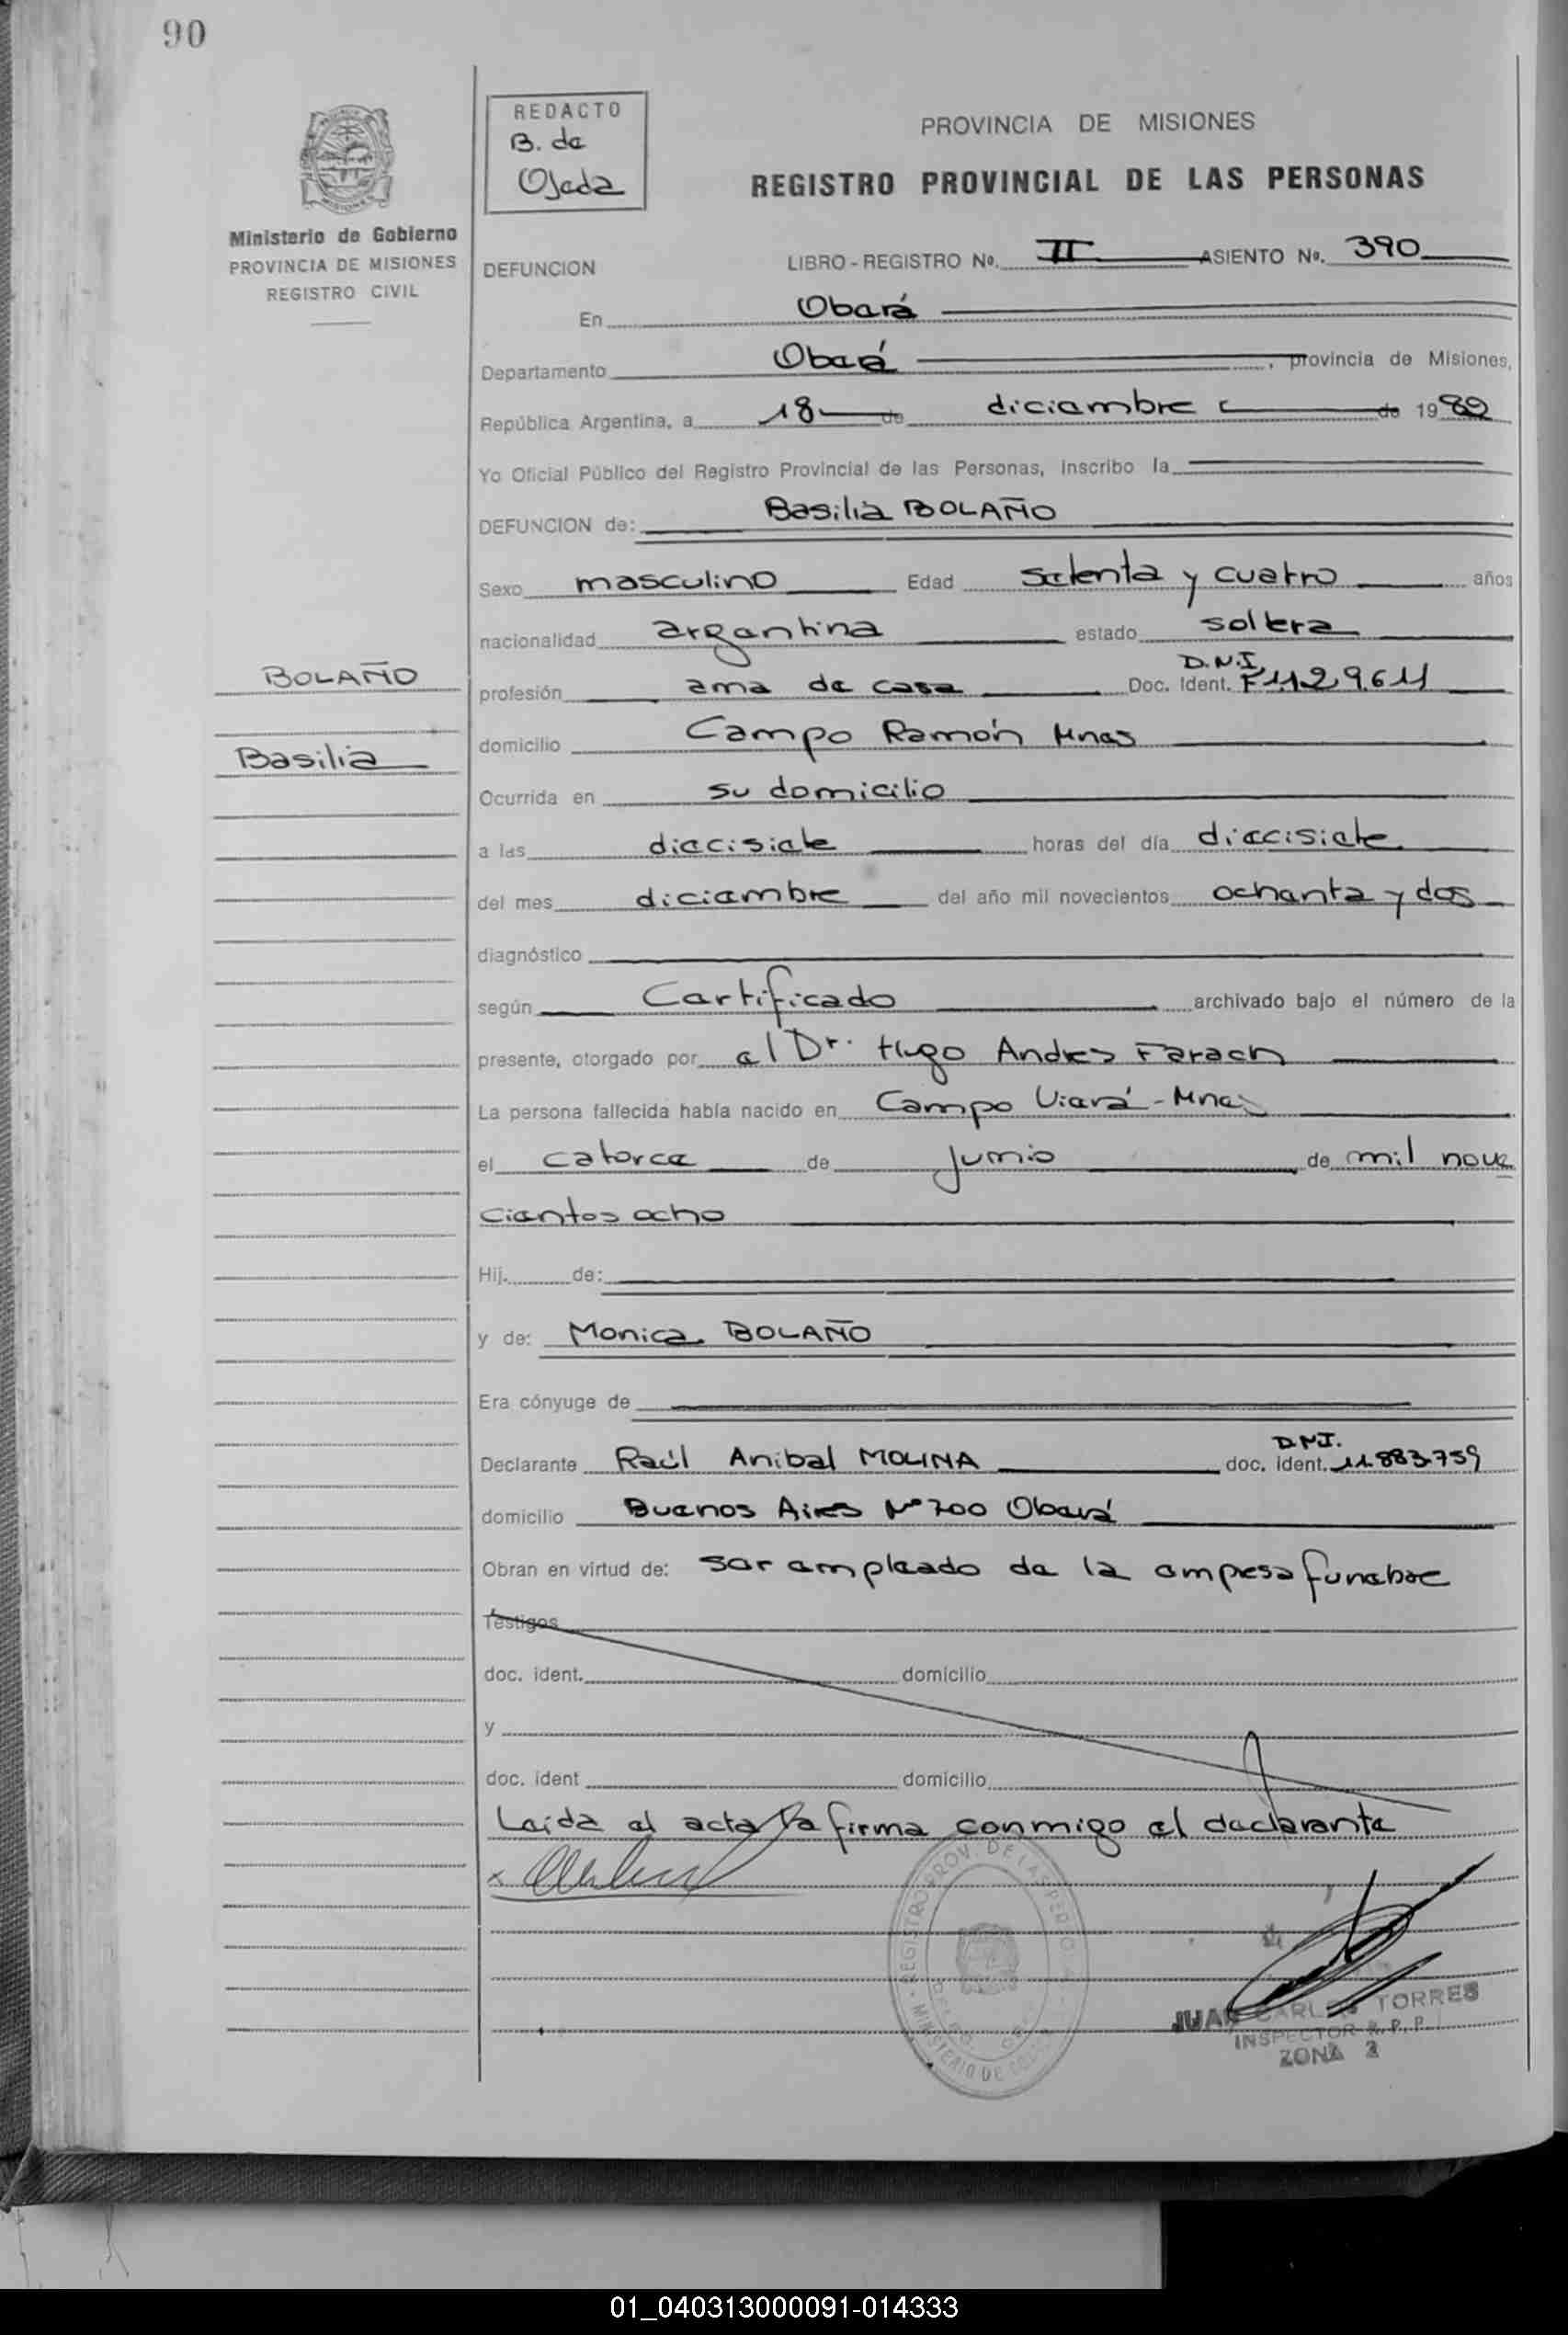 90
REDACTO
B. de
Ojeda
PROVINCIA DE MISIONES
REGISTRO PROVINCIAL DE LAS PERSONAS
Ministerio de Gobierno
PROVINCIA DE MISIONES
REGISTRO CIVIL
DEFUNCION LIBRO - REGISTRO Nº. II ASIENTO Nº. 390
En Oberá
Departamento Oberá, provincia de Misiones,
República Argentina, a 18 de diciembre de 1982
Yo Oficial Público del Registro Provincial de las Personas, inscribo la
DEFUNCION de: Basilia BOLAÑO
Sexo masculino Edad setenta y cuatro años
nacionalidad argentina estado soltera
BOLAÑO
Basilia
profesión ama de casa Doc. Ident. D.N.I. F 1.129.611
domicilio Campo Ramón Mnes
Ocurrida en su domicilio
a las diecisiete horas del día diecisiete
del mes diciembre del año mil novecientos ochenta y dos
diagnóstico
según Certificado archivado bajo el número de la
presente, otorgado por el Dr. Hugo Andres Farach
La persona fallecida había nacido en Campo Viera - Mnes
el catorce de junio de mil nove
cientos ocho
Hij. de:
y de: Monica BOLAÑO
Era cónyuge de
Declarante Raúl Anibal MOLINA doc. ident. D.N.I. 11.883.759
domicilio Buenos Aires Nº 700 Oberá
Obran en virtud de: ser empleado de la empresa funebre
Testigos
doc. ident. domicilio
y
doc. ident domicilio
Leida el acta la firma conmigo el declarante
x
REGISTRO PROV. DE LAS PERSONAS
MINISTERIO DE
JUAN CARLOS TORRES
INSPECTOR R. P. P.
ZONA 2
01_040313000091-014333